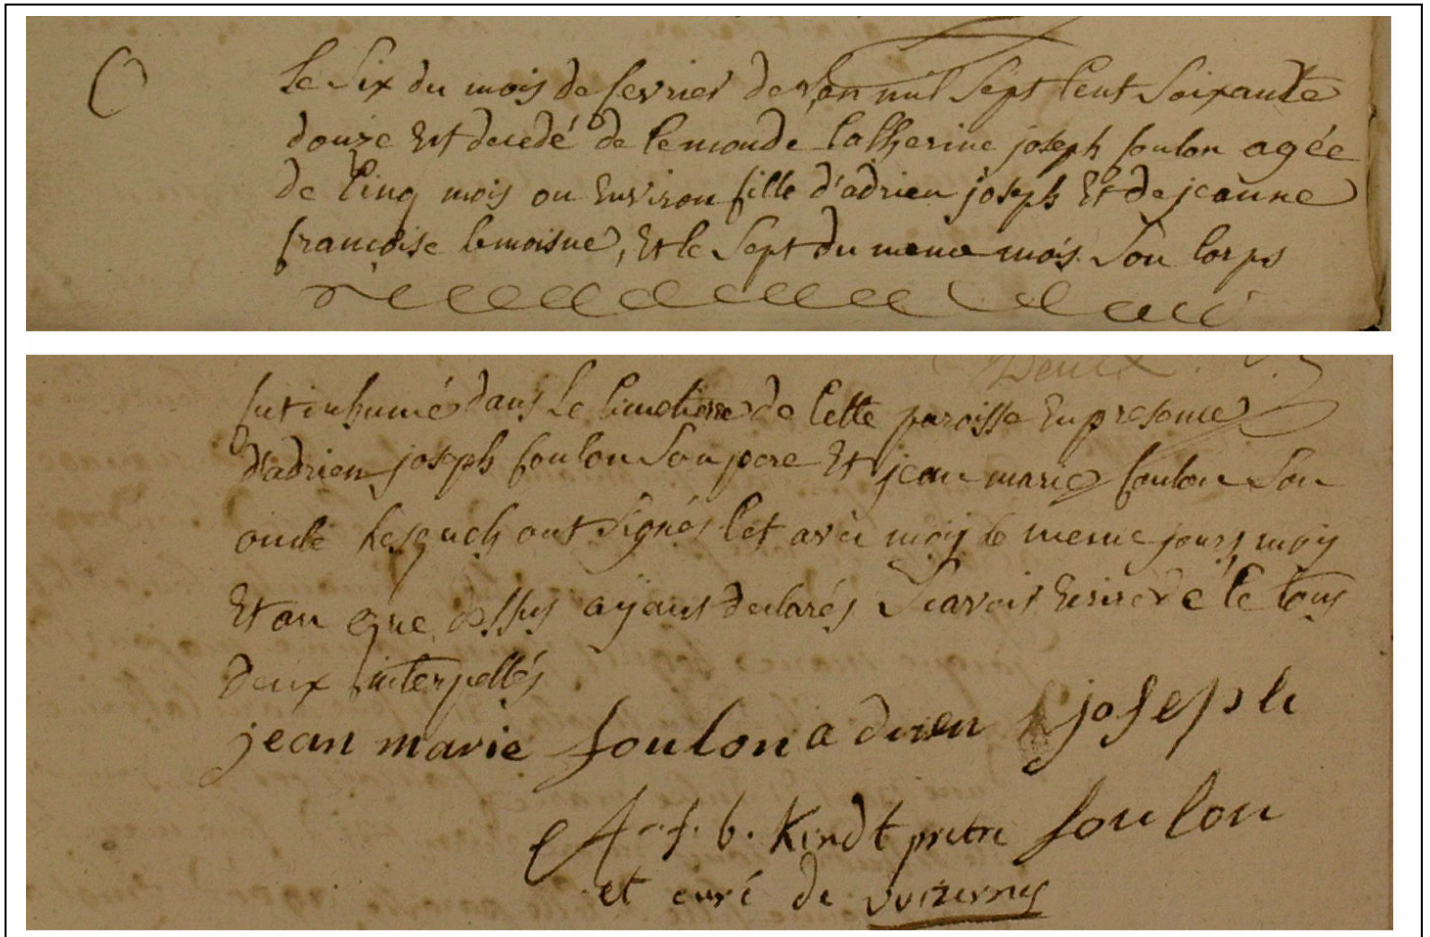 C
le six du mois de fevrier de l'an mil sept cent soixante
douze est decedé de ce monde Catherine joseph foulon agée
de cinq mois ou environ fille d'adrien joseph et de jeanne
françoise lemoisne, et le sept du meme mois son corps
Deux
fut inhumé dans le cimetiere de cette paroisse en presence
d'adrien joseph foulon son pere et jean marie foulon son
oncle lesquels ont signés cet avec moy le meme jours moy
et an que dessus ayant declarés scavoir ecrire de ce tous
deux interpellés
jean marie foulon adrien joseph
f. b. Kindt pretre foulon
et curé de wizernes